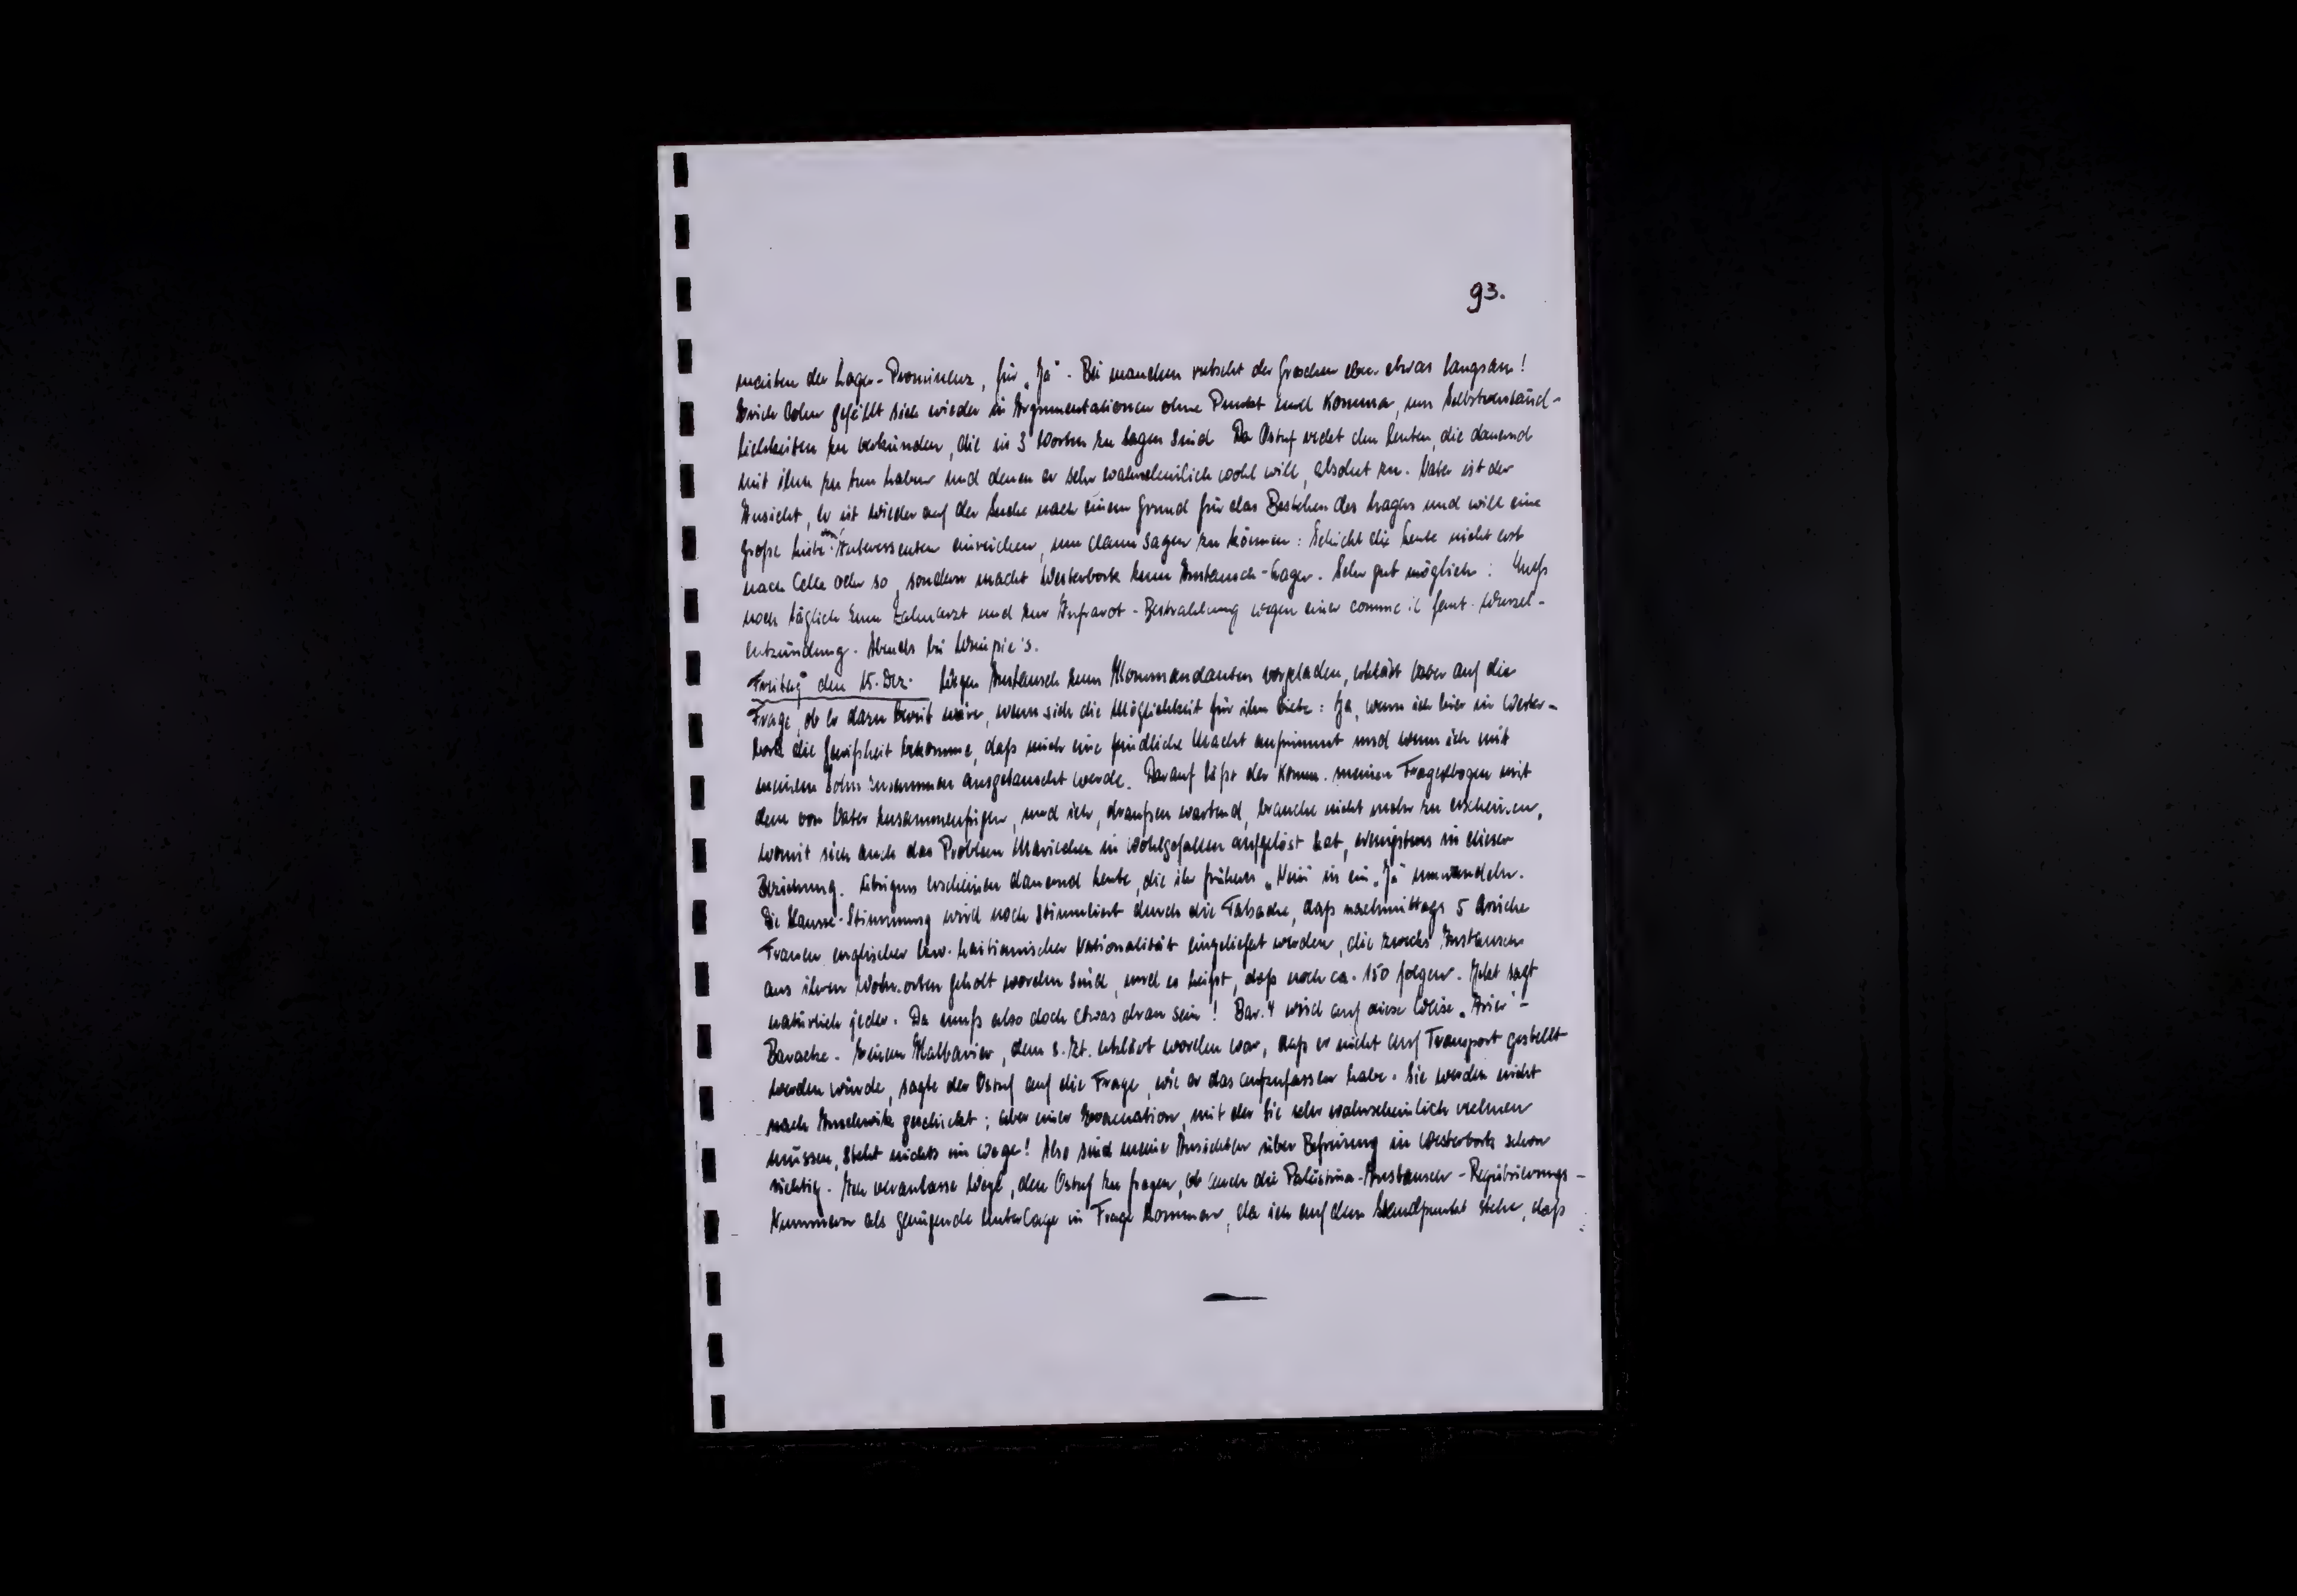 93.
meisten der Lager-Prominenz, für „Ja". Bei manchen rutscht der Groschen eben etwas langsam!
Erich Cohn gefällt sich wieder in Argumentationen ohne Punkt und Komma, um Selbstverständ-
lichkeiten zu verkünden, die in 3 Worten zu sagen sind. Der Ostuf redet den Leuten, die dauernd
mit ihm zu tun haben und denen er sehr wahrscheinlich wohl will, absolut zu. Vater ist der
Ansicht, er ist wieder auf der Suche nach einem Grund für das Bestehen des Lagers und will eine
große Liste von Interessenten einreichen, um dann sagen zu können: Schickt die Leute nicht erst
nach Celle oder so, sondern macht Westerbork zum Austausch-Lager. Sehr gut möglich! Muß
noch täglich zum Zahnarzt und zur Infrarot-Bestrahlung wegen einer comme il faut-Wurzel-
entzündung. Abends bei
Freitag den 15. Dez. Wegen Austausch zum Kommandanten vorgeladen, erklärt Vater auf die
Frage, ob er dazu bereit wäre, wenn sich die Möglichkeit für ihn biete: Ja, wenn ich hier in Wester-
bork die Gewißheit bekomme, daß mich eine feindliche Macht aufnimmt und wenn ich mit
meinem Sohn zusammen ausgetauscht werde. Darauf läßt der Komm. meinen Fragebogen mit
dem von Vater zusammenfügen, und ich, draußen wartend, brauche nicht mehr zu erscheinen,
womit sich auch das Problem Mariechen in Wohlgefallen aufgelöst hat, wenigstens in dieser
Beziehung. Übrigens erscheinen dauernd Leute, die ihr früheres „Nein" in ein „Ja" umwandeln.
Die Hausse-Stimmung wird noch stimuliert durch die Tatsache, daß nachmittags 5 arische
Frauen englischer bzw. haitianischer Nationalität eingeliefert werden, die zwecks Austausch
aus ihren Wohnorten geholt worden sind, und es heißt, daß noch ca. 150 folgen. Jetzt sagt
natürlich jeder: Da muß also doch etwas dran sein! Bar. 4 wird auf diese Weise „Arier"-
Baracke. Einem Halbarier, dem s. Zt. erklärt worden war, daß er nicht auf Transport gestellt
werden würde, sagte der Ostuf auf die Frage, wie er das aufzufassen habe: Sie werden nicht
nach Auschwitz geschickt; aber einer Evacuation, mit der Sie sehr wahrscheinlich rechnen
müssen, steht nichts im Wege! Also sind meine Ansichten über Befreiung in Westerbork schon
richtig. Ich veranlasse Wege, den Ostuf zu fragen, ob auch die Palästina-Austausch-Registrierungs-
Nummern als genügende Unterlage in Frage kommen, da ich auf dem Standpunkt stehe, daß